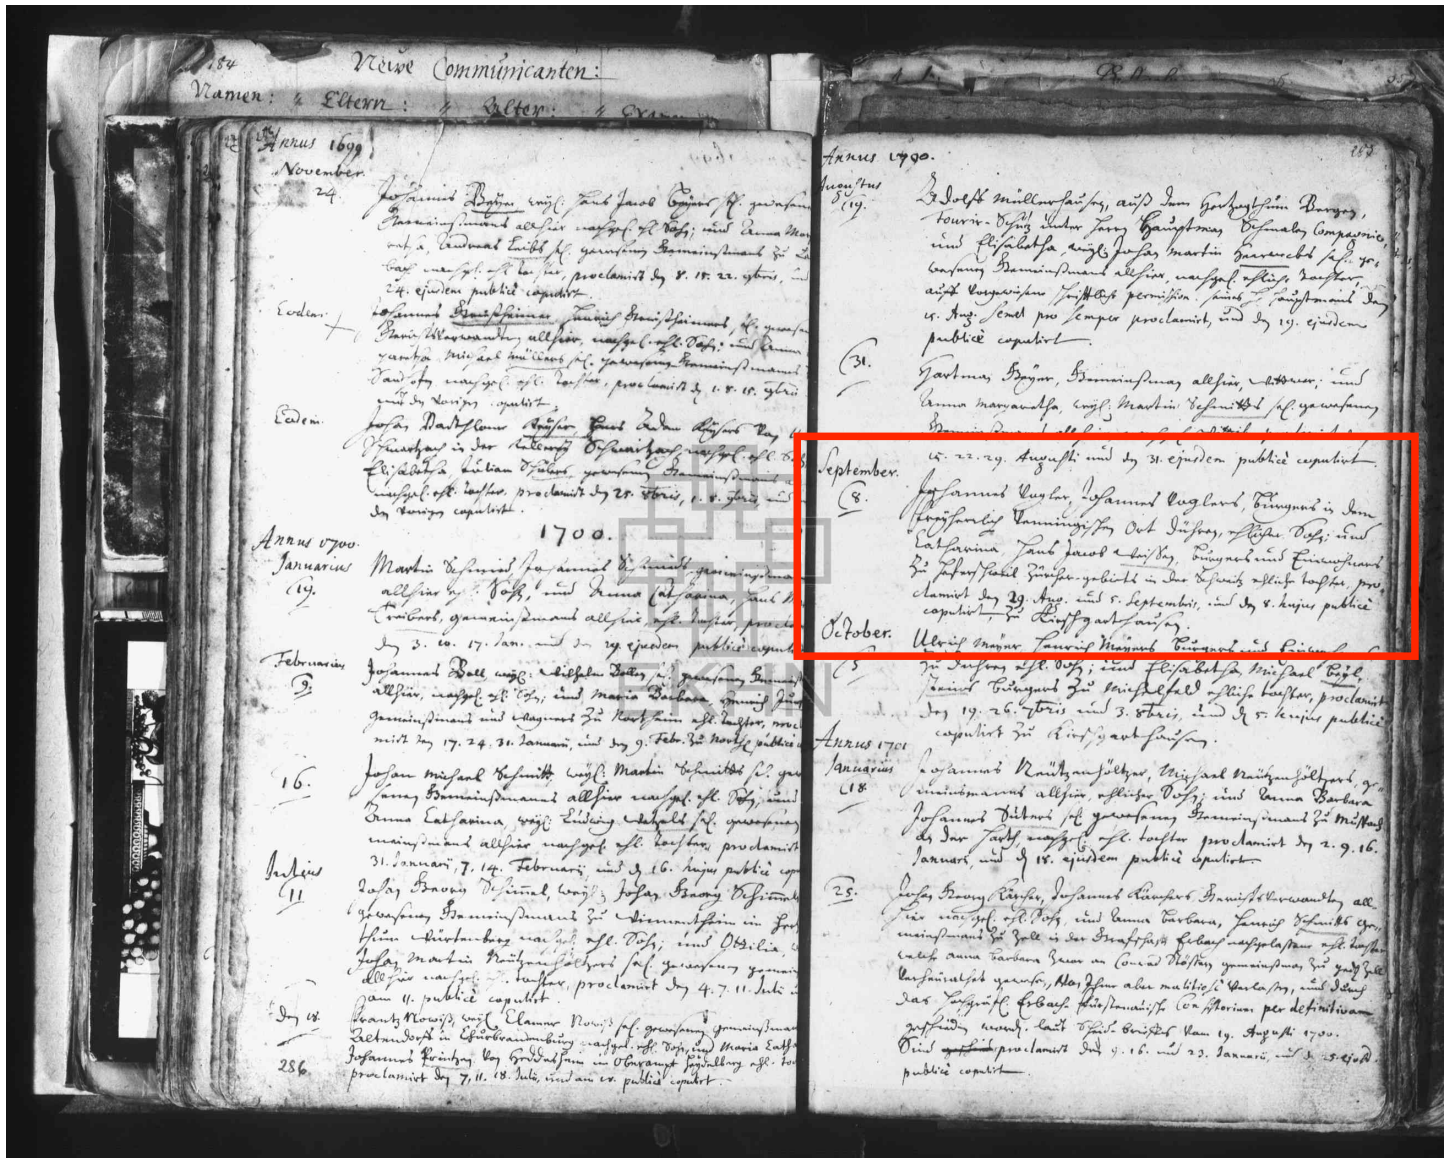 184
Neuwe Communicanten:
Namen: " Eltern: " Alter: " Examen
Annus 1699
November.
24.
Johannes Beyer, weyl. Hans Jacob Beyers sel. gewesenen
Gemeinßmans allhier nachgel. ehl. Sohn; und Anna Mar-
Andreas Leibs sel. gewesenen Gemeinßmans zu
bach nachgel. ehl. tochter, proclamirt den 8. 15. 22. 9bris, und
24. ejusdem publicè copulirt.
Eodem.
Johannes Henrich sel. gewesenen
allhier, nachgel. ehl. Sohn; und Anna
Michael Müllers sel. gewesenen Gemeinßmans
Sandhofen nachgel. ehl. tochter, proclamirt d. 1. 8. 15. 9bris
copulirt.
Eodem.
Johan Barthlome Hans Adam Kysers von
Schwartzach in der Kellerey Schwartzach nachgel. ehl. Sohn
Elisabetha gewesenen Gemeinßmans
nachgel. ehl. tochter, proclamirt den 25. 8bris, 1. 8. 9bris, und
copulirt.
1700.
Annus 1700.
Januarius
19.
Martin Schmid, Johannes Schmids gemeinßmans
allhier ehl. Sohn, und Anna Catharina, Hans
gemeinßmans allhier, ehl. tochter, procla-
den 3. 10. 17. Jan. und den 19 ejusdem publicè copulirt
Februarius
9.
Johannes Boll, weyl. Wilhelm Bollen sel. gewesenen Gemeinß-
allhier, nachgel. ehl. Sohn; und Maria Barbara, Henrich
gemeinßmans und Wagners zu Northeim ehl. tochter, procla-
mirt den 17. 24. 31. Januarii, und den 9. Febr. zu Northeim publicè
16.
Johan Michael Schmitt, weyl: Martin Schmitts sel. gewe-
senen Gemeinßmanns allhier nachgel. ehl. Sohn; und
Anna Catharina, weyl: Ludwig Wetzels sel. gewesenen
meinßmans allhier nachgel. ehl. tochter, proclamirt
31. Januarii, 7. 14. Februarii, und d. 16. hujus publicè copu
Julius
11
Johan Georg Schimmel, weyl: Johan Georg Schimmels
gewesenen Gemeinßmans zu im Hertzog-
thum Würtenberg nachgel. ehl. Sohn; und Ottilia,
Johan Martin Neützenhöltzers sel. gewesenen gemein
allhier nachgel. tochter, proclamirt den 4. 7. 11. Juli u
am 11. publicè copulirt.
den 18.
Frantz Nowiß, weyl. Nowiß sel. gewesenen gemeinßmans
Altendorff in Churbrandenburg nachgel. ehl. Sohn, und Maria Catha
Johannes Printzen von im Oberampt Heydelberg ehl. toch
proclamirt den 7, 11. 18. Juli, und am publicè copulirt.
286
285
Annus 1700.
Augustus
19.
Adolff Müllerhausen, auß dem Hertzogthum Bergen,
Schütz unter Herrn Hauptman Schmalen Compagnie,
und Elisabetha, weyl: Johan Martin sel. ge-
wesenen Gemeinßmans allhier, nachgel. ehliche tochter,
auff vorgewisene schrifftliche permission seines H. Hauptmans den
15. Aug. semel pro semper proclamirt, und den 19. ejusdem
publicè copulirt.
31.
Hartman Beyer, Gemeinßman allhier, wittwer; und
Anna Margaretha, weyl: Martin Schmitts sel. gewesenen
15. 22. 29. Augusti und den 31. ejusdem publicè copulirt.
September.
8.
Johannes Vogler, Johannes Voglers, burgers in dem
freyherrlich Venningischen Ort Dühren, ehlicher Sohn; und
Catharina, Hans Jacob Weissen, burgers und Einwohners
zu Zürcher-gebiets in der Schweitz ehliche tochter, pro-
clamirt den 29. Aug. und 5. Septembris, und den 8. hujus publicè
copulirt, zu Kirschgarthausen.
October.
5
Ulrich Meyer, Henrich Meyers burgers und Einwohners
zu Duhren ehl. Sohn; und Elisabetha, Michael
burgers zu Michelfeld ehliche tochter, proclamirt
den 19. 26. 7bris und 3. 8bris, und d. 5. hujus publicè
copulirt zu Kirschgarthausen.
Annus 1701
Januarius
18.
Johannes Neützenhöltzer, Michael Neützenhöltzers ge-
meinsmannes allhier, ehlicher Sohn; und Anna Barbara
Johannes Süters sel. gewesenen Gemeinßmans zu Mußbach
an der Hardt, nachgel. ehl. tochter proclamirt den 2. 9. 16.
Januarii, und d. 18. ejusdem publicè copulirt.
25.
Johan Georg Kärcher, Johannes Kärchers Gerichtsverwandten all-
hier nachgel. ehl. Sohn, und Anna Barbara, Henrich Schmitts ge-
meinßmans zu Zell in der Graffschafft Erbach nachgelassene ehl. tochter
welche Anna Barbara zwar an Conrad gemeinßman zu Zell
verheurathet gewesen, von Ihme aber malitiosè verlassen, und durch
das Hochgräfl. Erbach Fürstenauische Consistorium per definitivam
geschieden worden, laut Scheidbrieffes vom 19. Augusti 1700.
Sind proclamirt den 9. 16. und 23. Januarii, und d. 25. ejusd.
publicè copulirt.
EKHN